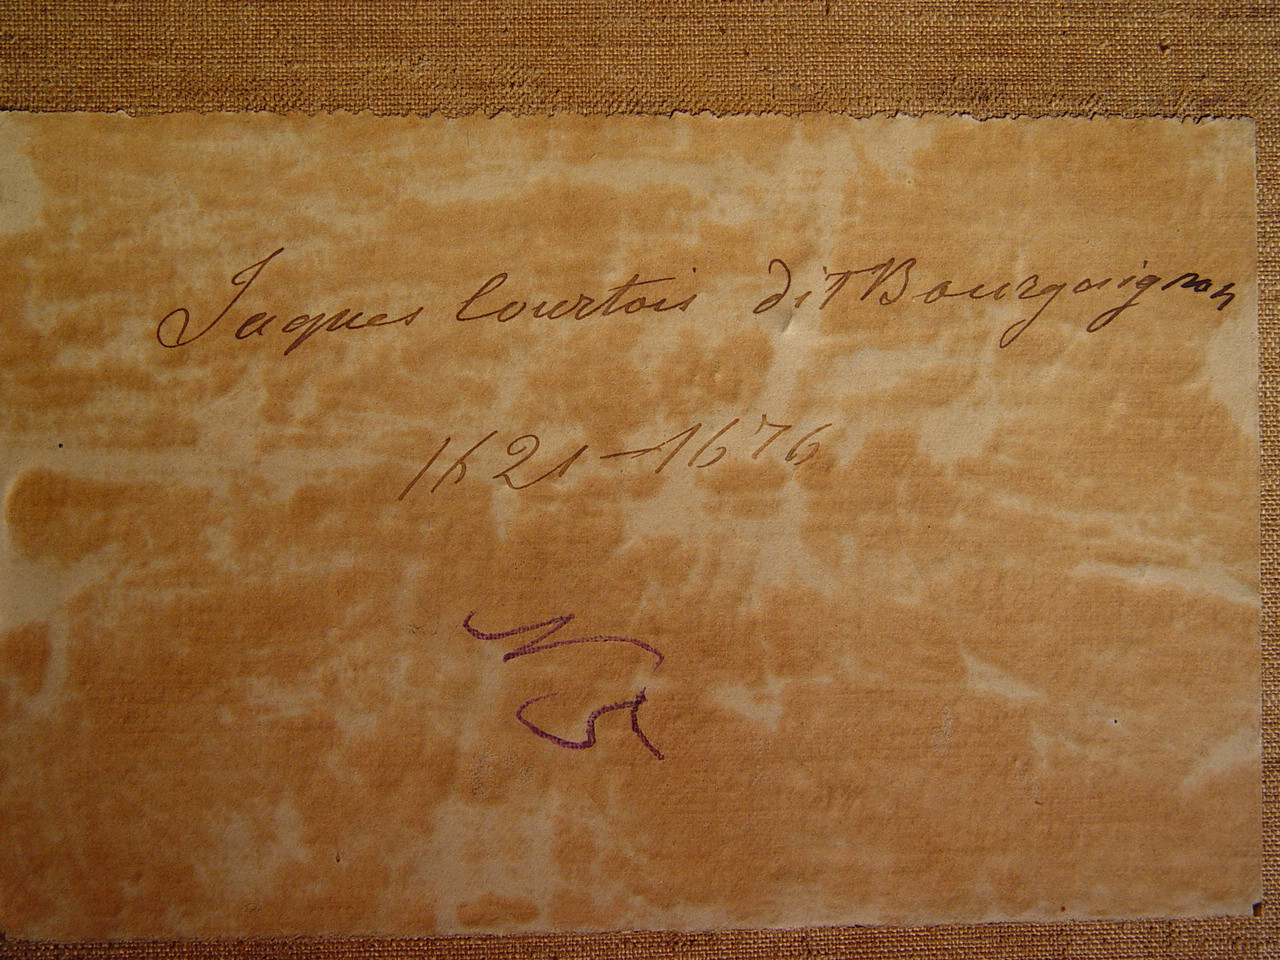 Jaques Courtois dit Bourgoignon
1621-1676